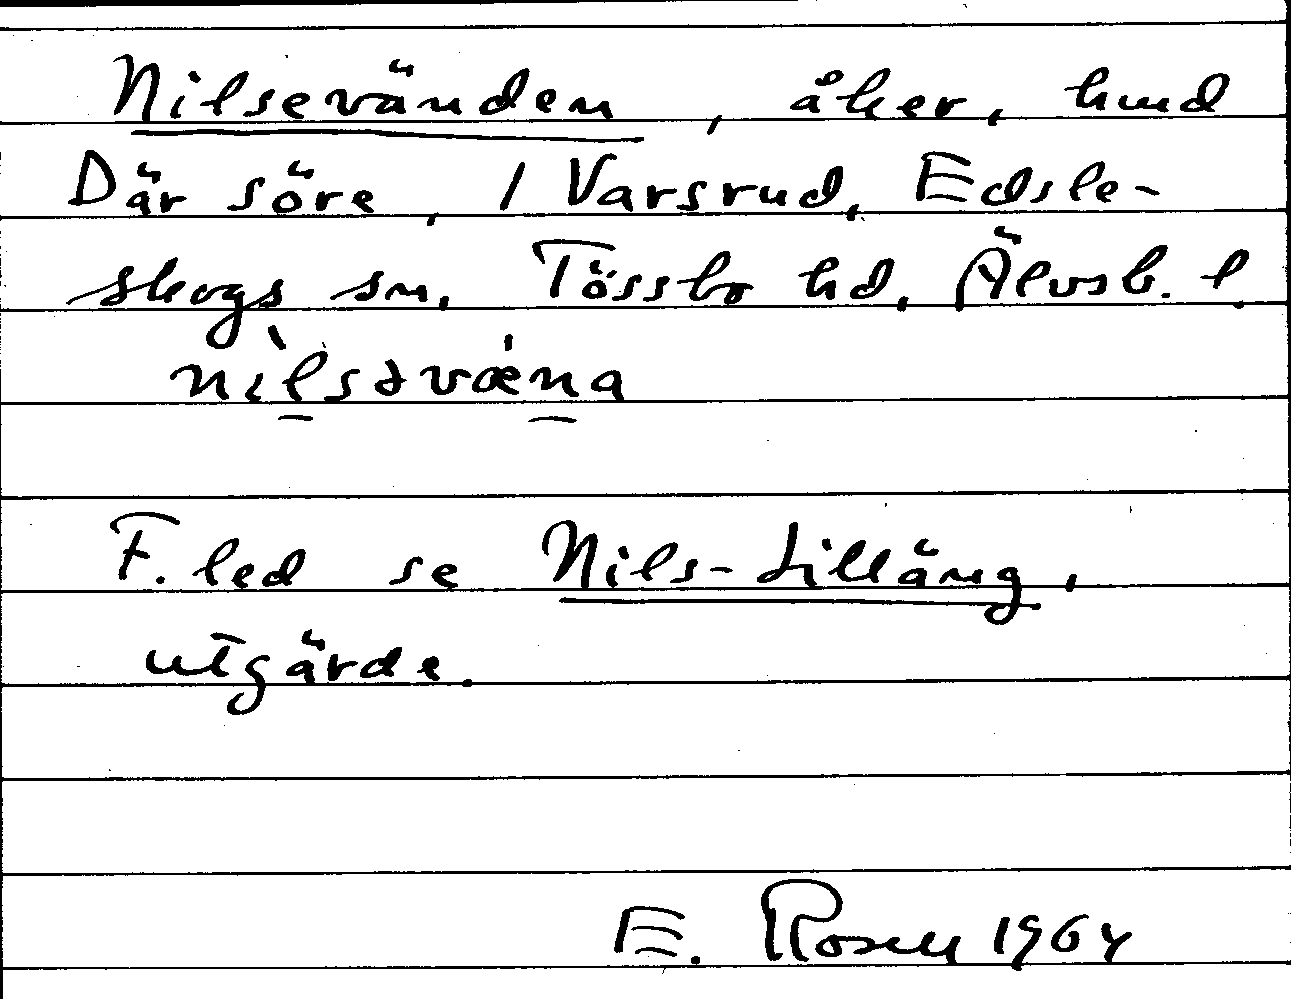 Nilsevänden, åker, hmd
Där söre, 1 Varsrud, Edsle-
skogs sn, Tössbo hd, Älvsb. l.
nìlsəvæ̍na
F. led se Nils-lilläng,
utgärde.
E. Rosell 1964